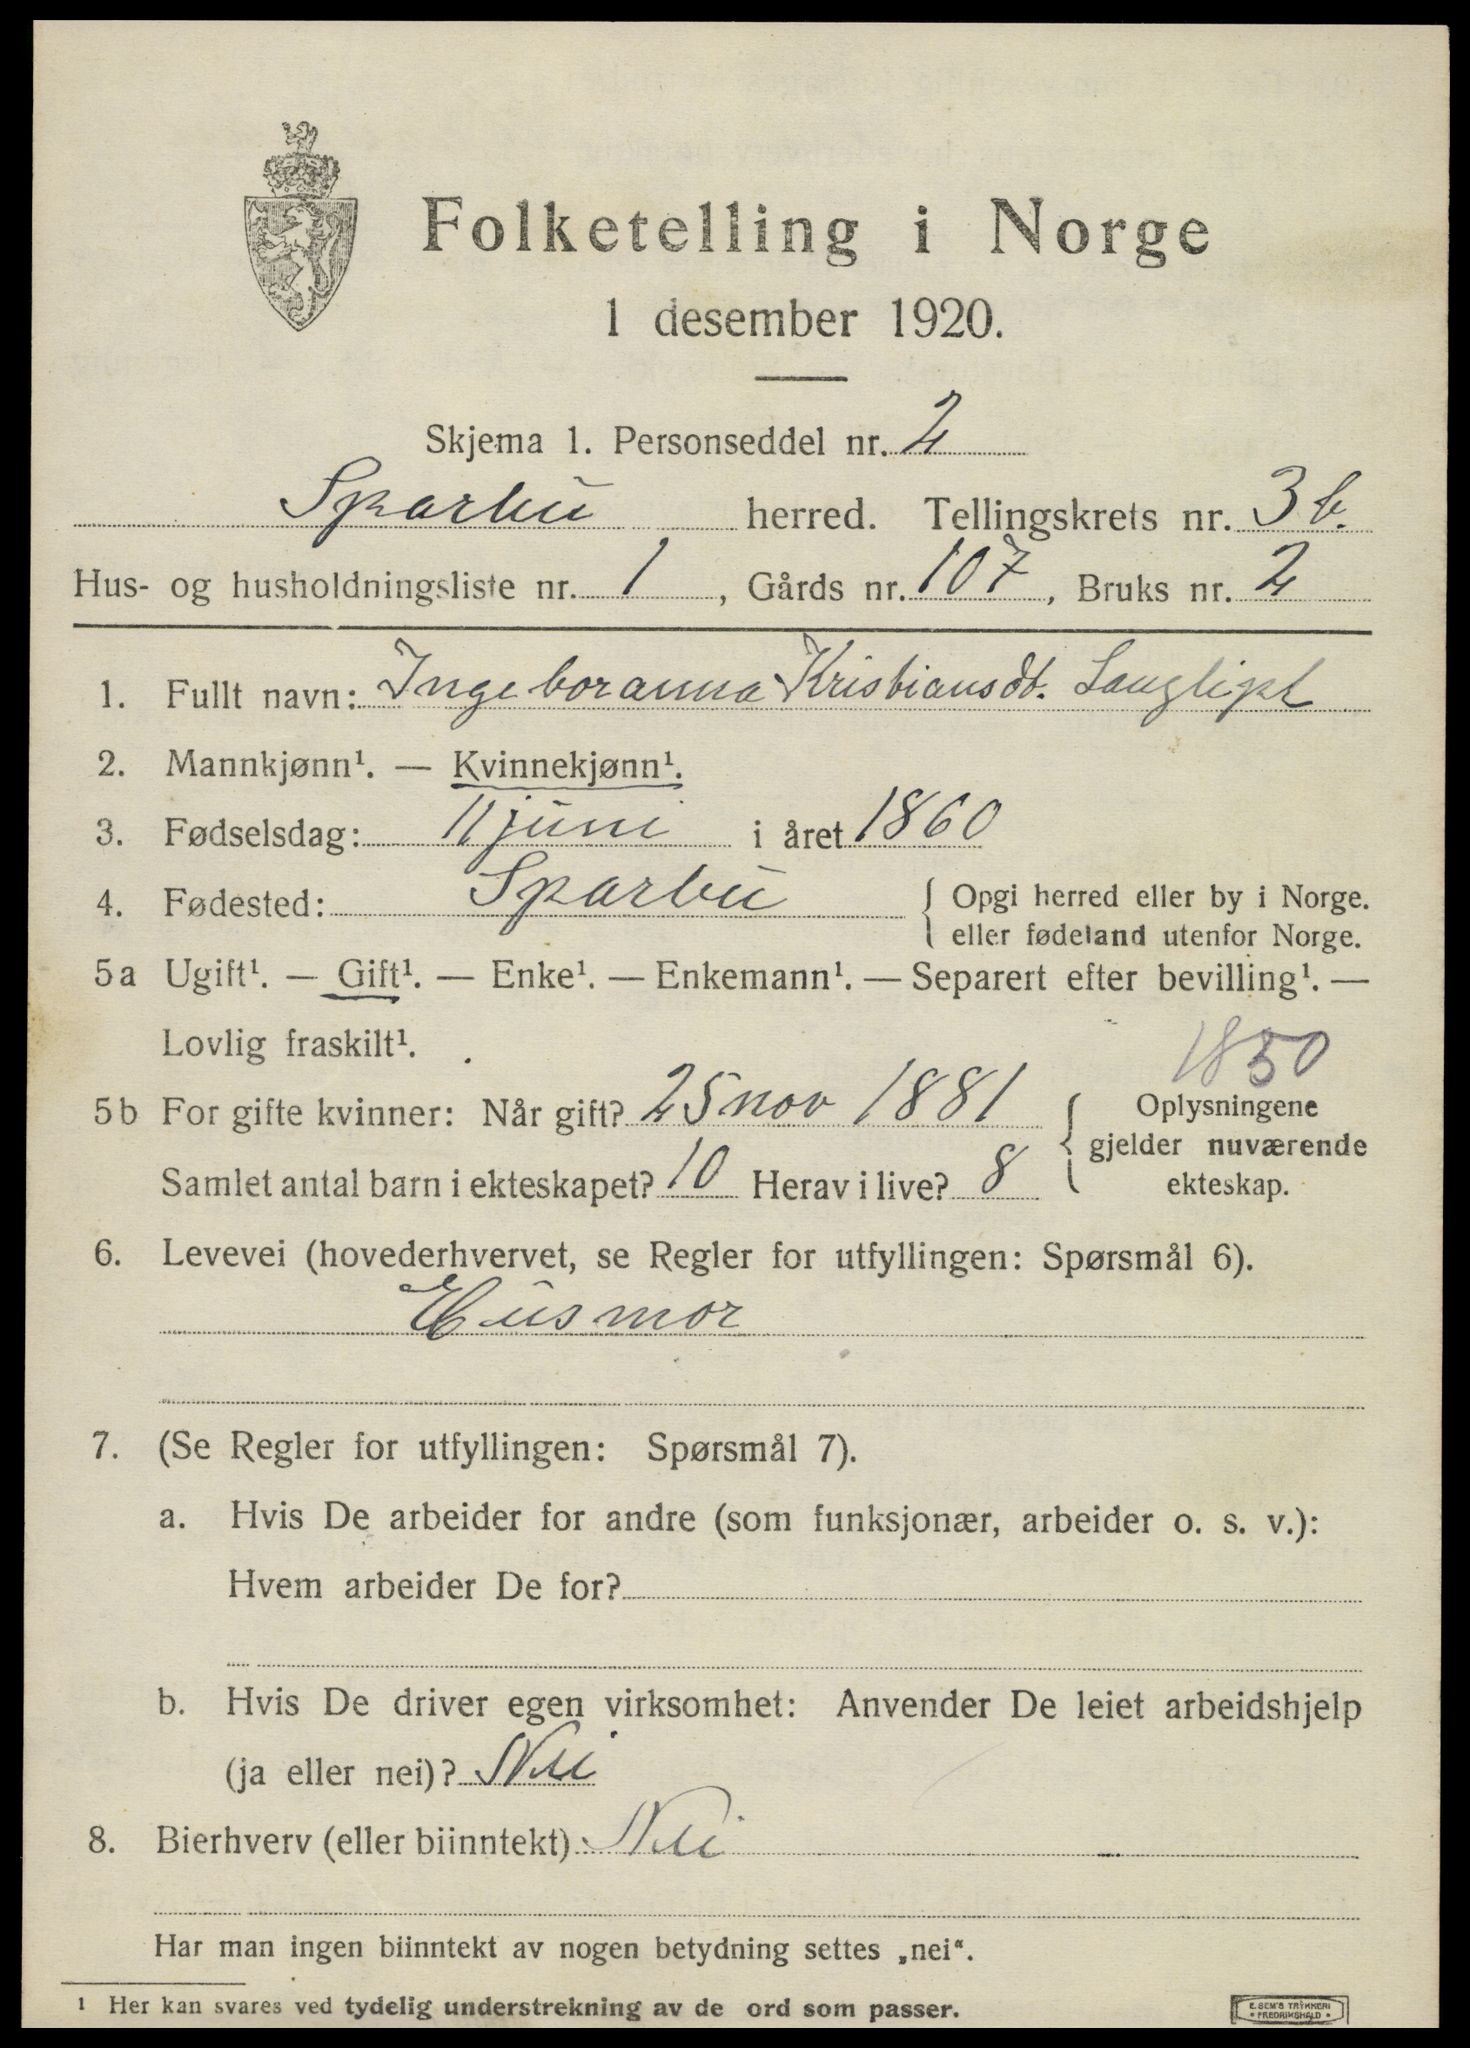 Folketelling i Norge
1 desember 1920.
Skjema 1. Personseddel nr. 2
Sparbu herred. Tellingskrets nr. 3 b.
Hus- og husholdningsliste nr. 1, Gårds nr. 107, Bruks nr. 2
1. Fullt navn: Ingeboranna Kristiansdt.
2. Mannkjønn¹. — Kvinnekjønn¹.
3. Fødselsdag: 11 juni i året 1860
4. Fødested: Sparbu { Opgi herred eller by i Norge.
eller fødeland utenfor Norge.
5a Ugift¹. — Gift¹. — Enke¹. — Enkemann¹. — Separert efter bevilling¹. —
Lovlig fraskilt¹.
1850
5b For gifte kvinner: Når gift? 25 nov 1881 { Oplysningene
gjelder nuværende
Samlet antal barn i ekteskapet? 10 Herav i live? 8 ekteskap.
6. Levevei (hovederhvervet, se Regler for utfyllingen: Spørsmål 6).
Husmor
7. (Se Regler for utfyllingen: Spørsmål 7).
a. Hvis De arbeider for andre (som funksjonær, arbeider o. s. v.):
Hvem arbeider De for?
b. Hvis De driver egen virksomhet: Anvender De leiet arbeidshjelp
(ja eller nei)? Nei
8. Bierhverv (eller biinntekt): Nei
Har man ingen biinntekt av nogen betydning settes „nei“.
¹ Her kan svares ved tydelig understrekning av de ord som passer.
E. SEM'S TRYKKERI
• FREDRIKSHALD •